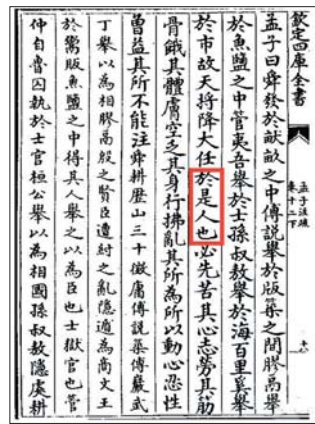 欽定四庫全書
孟子注疏
卷十二下
孟子曰舜發於畎畝之中傅說舉於版築之間膠鬲舉
於魚鹽之中管夷吾舉於士孫叔敖舉於海百里奚舉
於市故天將降大任於是人也必先苦其心志勞其筋
骨餓其體膚空乏其身行拂亂其所為所以動心忍性
曾益其所不能注舜耕歷山三十徵庸傅說築傅巖武
丁舉以為相膠鬲殷之賢臣遭紂之亂隱遁為商文王
於鬻販魚鹽之中得其人舉之以為臣也士獄官也管
仲自魯囚執於士官桓公舉以為相國孫叔敖隱處耕